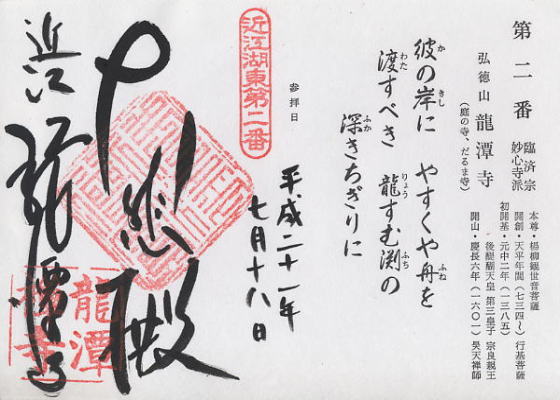 第二番
臨済宗
妙心寺派
弘徳山 龍潭寺
(庭の寺、だるま寺)
本尊・楊柳観世音菩薩
開創・天平年間(七三四〜) 行基菩薩
初開基・元中二年(一三八五)
後醍醐天皇 第三皇子 宗良親王
開山・慶長六年(一六〇一) 昊天禅師
彼の岸に やすくや舟を
渡すべき 龍すむ渕の
深きちぎりに
か きし ふね
わた りょう ふち
ふか
参拝日
平成二十一年
七月十八日
近江湖東第二番
大悲殿
近江 龍潭寺
龍潭